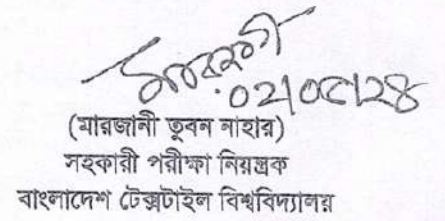 ০২|০৫|২৪
(মারজানী ভূবন নাহার)
সহকারী পরীক্ষা নিয়ন্ত্রক
বাংলাদেশ টেক্সটাইল বিশ্ববিদ্যালয়